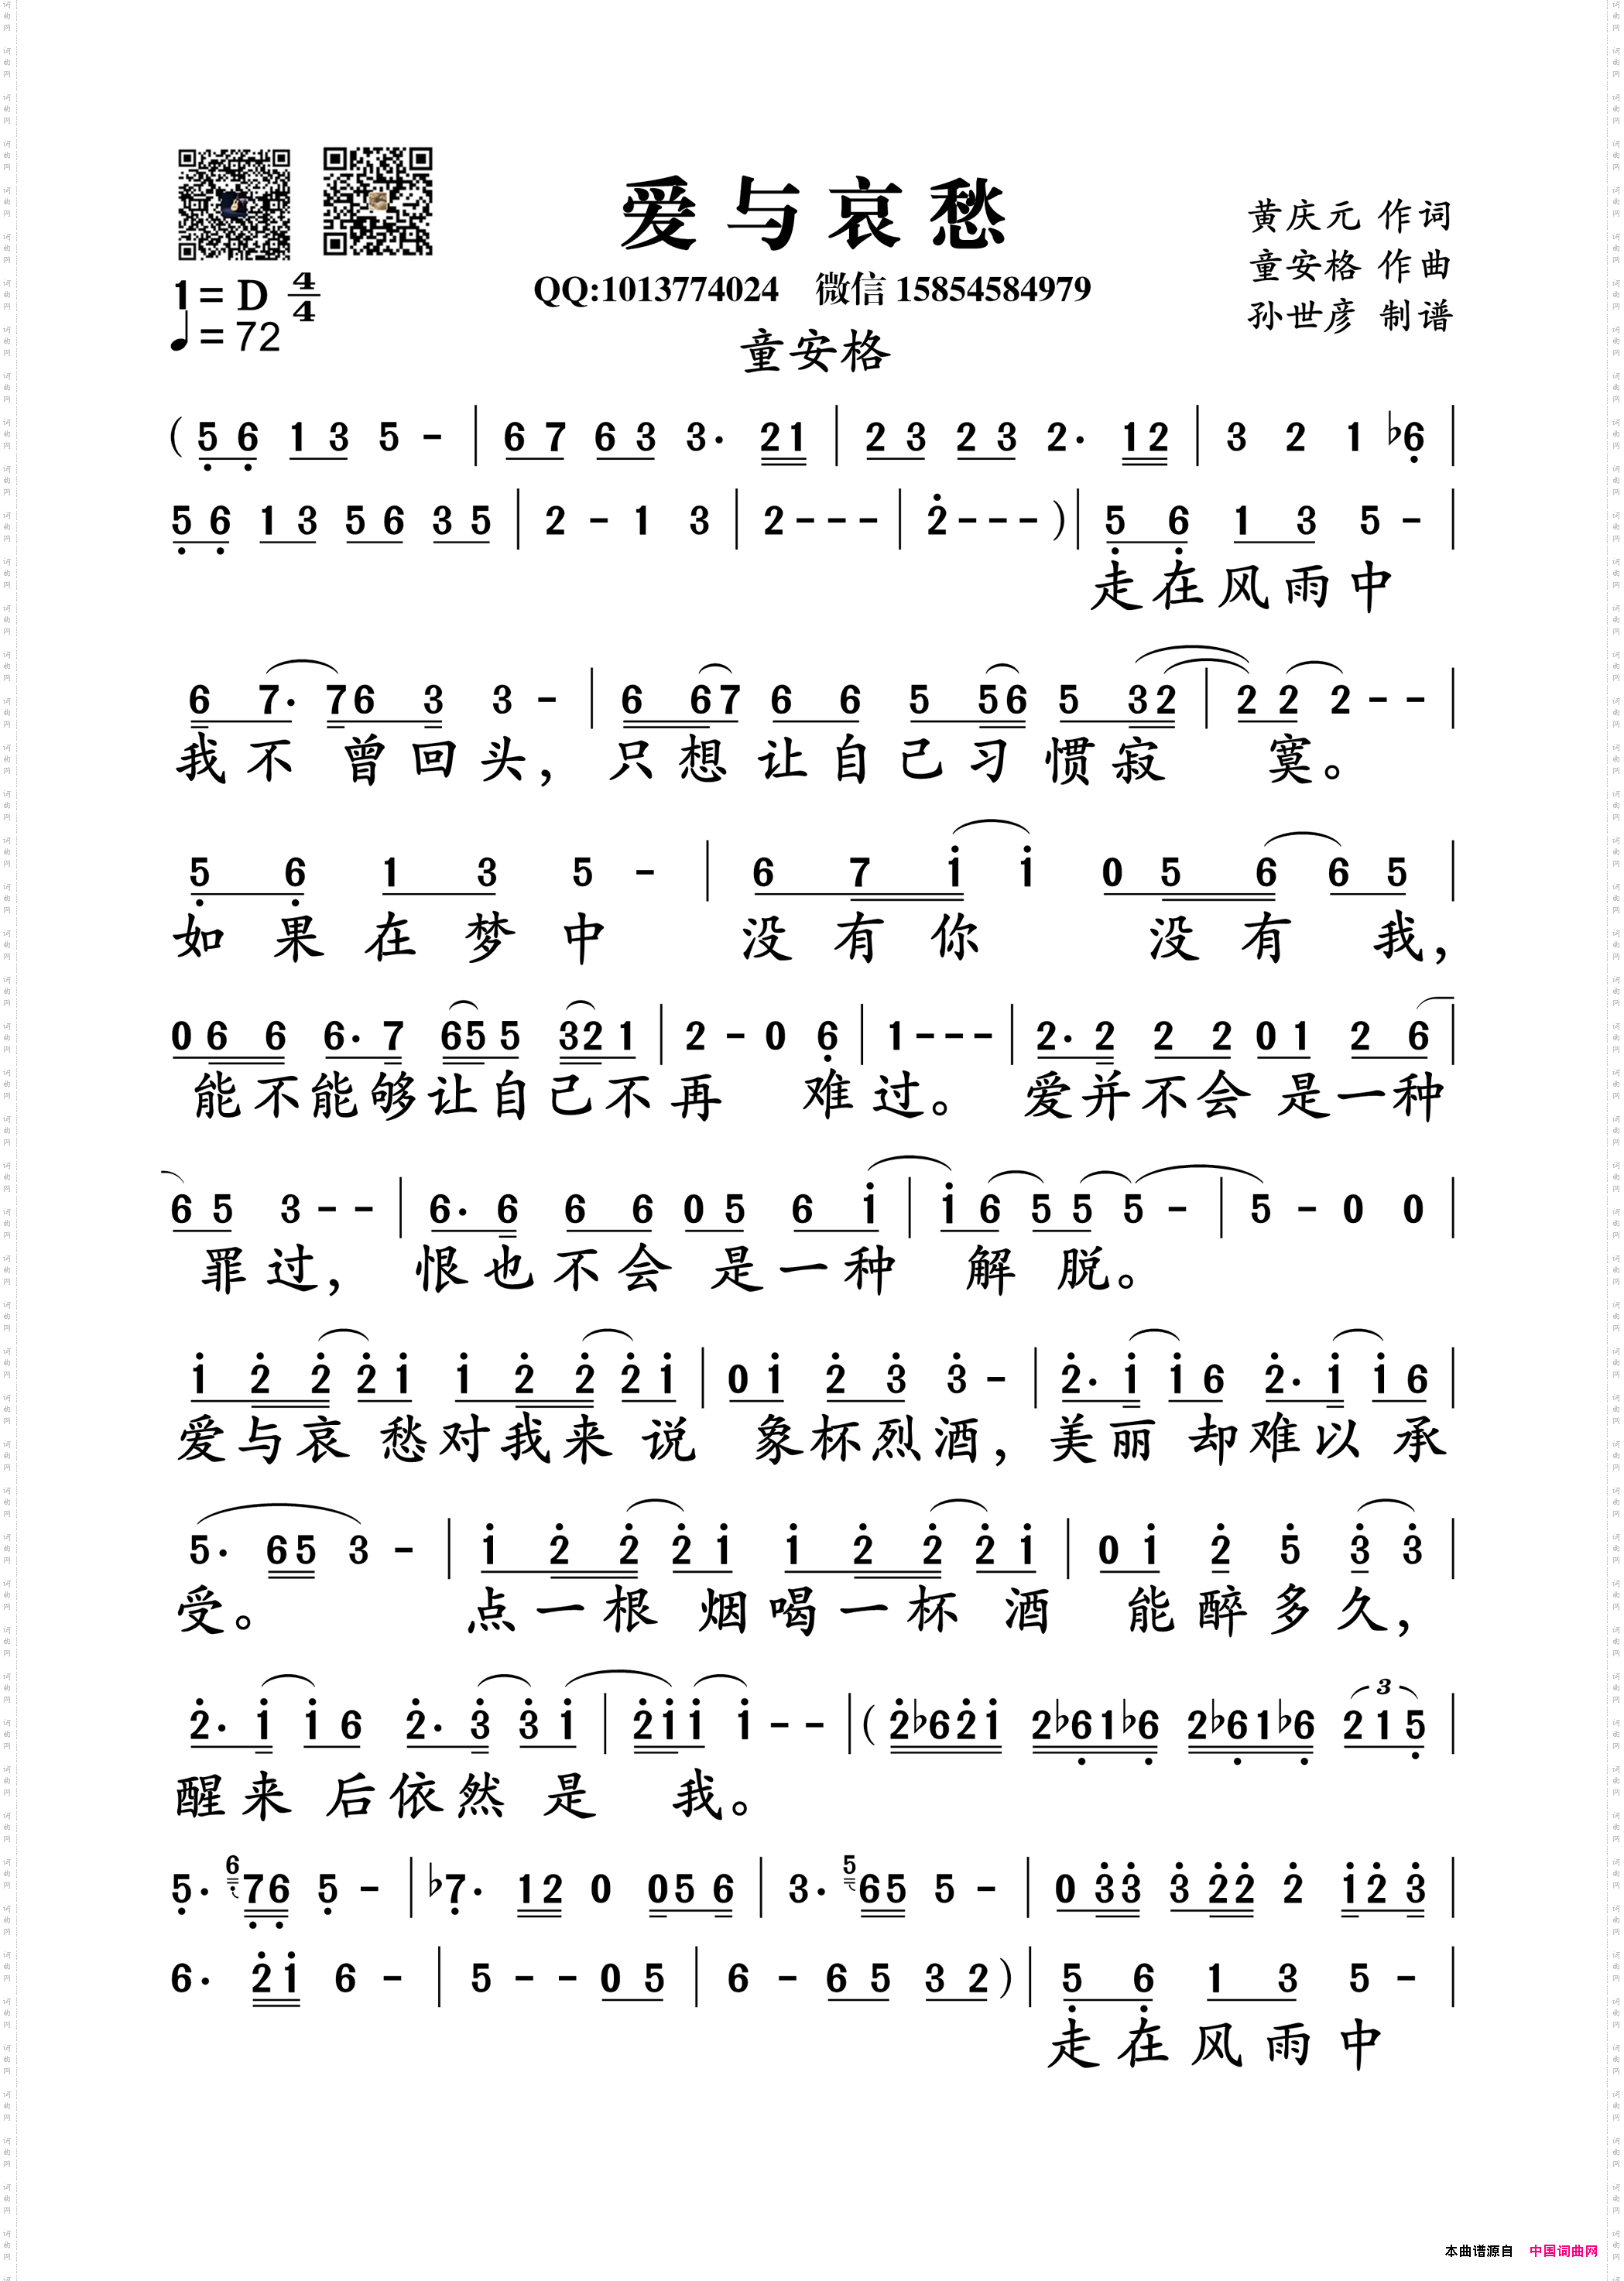 爱与哀愁
黄庆元 作词
QQ:1013774024 微信 15854584979
童安格 作曲
1=D 4/4
孙世彦 制谱
♩=72
童安格
( 5 6 1 3 5 - | 6 7 6 3 3· 2 1 | 2 3 2 3 2· 1 2 | 3 2 1 ♭6 |
5 6 1 3 5 6 3 5 | 2 - 1 3 | 2 - - - | 2 - - - ) | 5 6 1 3 5 - |
走在风雨中
6 7· 7 6 3 3 - | 6 6 7 6 6 5 5 6 5 3 2 | 2 2 2 - - |
我不曾回头，只想让自己习惯寂寞。
5 6 1 3 5 - | 6 7 1 1 0 5 6 6 5 |
如果在梦中没有你没有我，
0 6 6 6· 7 6 5 5 3 2 1 | 2 - 0 6 | 1 - - - | 2· 2 2 2 0 1 2 6 |
能不能够让自己不再难过。爱并不会是一种
6 5 3 - - | 6· 6 6 6 0 5 6 1 | 1 6 5 5 5 - | 5 - 0 0 |
罪过，恨也不会是一种解脱。
1 2 2 2 1 1 2 2 2 1 | 0 1 2 3 3 - | 2· 1 1 6 2· 1 1 6 |
爱与哀愁对我来说象杯烈酒，美丽却难以承
5· 6 5 3 - | 1 2 2 2 1 1 2 2 2 1 | 0 1 2 5 3 3 |
受。点一根烟喝一杯酒能醉多久，
2· 1 1 6 2· 3 3 1 | 2 1 1 1 - - | ( 2 ♭6 2 1 2 ♭6 1 ♭6 2 ♭6 1 ♭6 3 2 1 5 |
醒来后依然是我。
5· 6 7 6 5 - | ♭7· 1 2 0 0 5 6 | 3· 5 6 5 5 - | 0 3 3 3 2 2 2 1 2 3 |
6· 2 1 6 - | 5 - - 0 5 | 6 - 6 5 3 2 ) | 5 6 1 3 5 - |
走在风雨中
本曲谱源自 中国词曲网